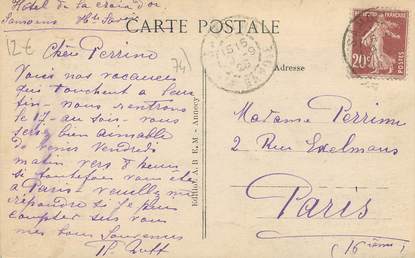 Hotel de la croix d'or
Samoëns Hte Savoie
CARTE POSTALE
12 €
74)
Chère Perrine
Voici nos vacances
qui touchent à leur
fin - nous rentrons
le 17 - au soir - vous
serez bien aimable
de venir Vendredi
matin vers 8 heures
si toutefois vous êtes
à Paris - veuillez me
répondre si je peux
compter sur vous
mes bons Souvenirs
Edition A. B. E. M. - Annecy
Adresse
RÉPUBLIQUE FRANÇAISE
20c
POSTES
Madame Perrine
2 Rue Exelmans
Paris
(16 ième)